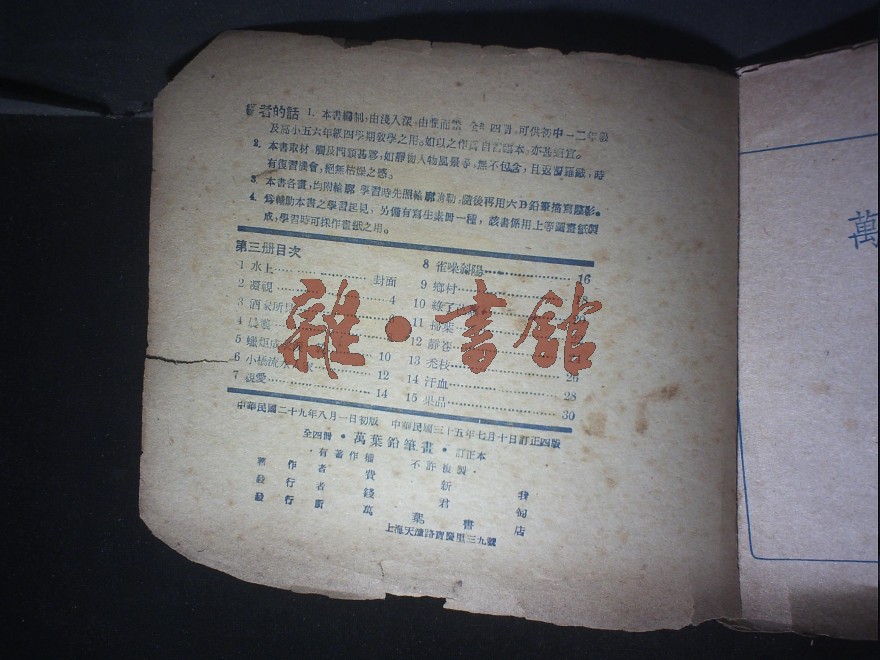 著者的話 1. 本書編制，由淺入深，由 全書四冊，可供初中一二年級
及高小五六年級四學期教學之用。如以之作為自習畫本，亦甚適宜。
2. 本書取材，門類甚夥，如靜物人物風景等，無不包含，且 時
有復習機會，絕無枯燥之感。
3. 本書各畫，均附輪廓 學習時先照輪廓 隨後再用六B鉛筆描寫陰影。
4. 為輔助本書之學習起見，另備有寫生素冊一種，該書係用上等圖畫紙製
成，學習時可採作畫紙之用。
第三冊目次
1 水上 封面
2 凝視 4
3 酒家所見
4 晨
5
6 小橋流水 10
7 親愛 12
14
8 雀噪斜陽 16
9 鄉村 18
10
11 掃葉
12 靜巷
13 禿枝 26
14 汗血 28
15 果品 30
雜·書館
中華民國二十九年八月一日初版 中華民國三十五年七月十日訂正四版
全四冊·萬葉鉛筆畫·訂正本
·有著作權 不許複製·
著作者 費新我
發行者 錢君匋
發行所 萬葉書店
上海天潼路寶慶里三九號
萬